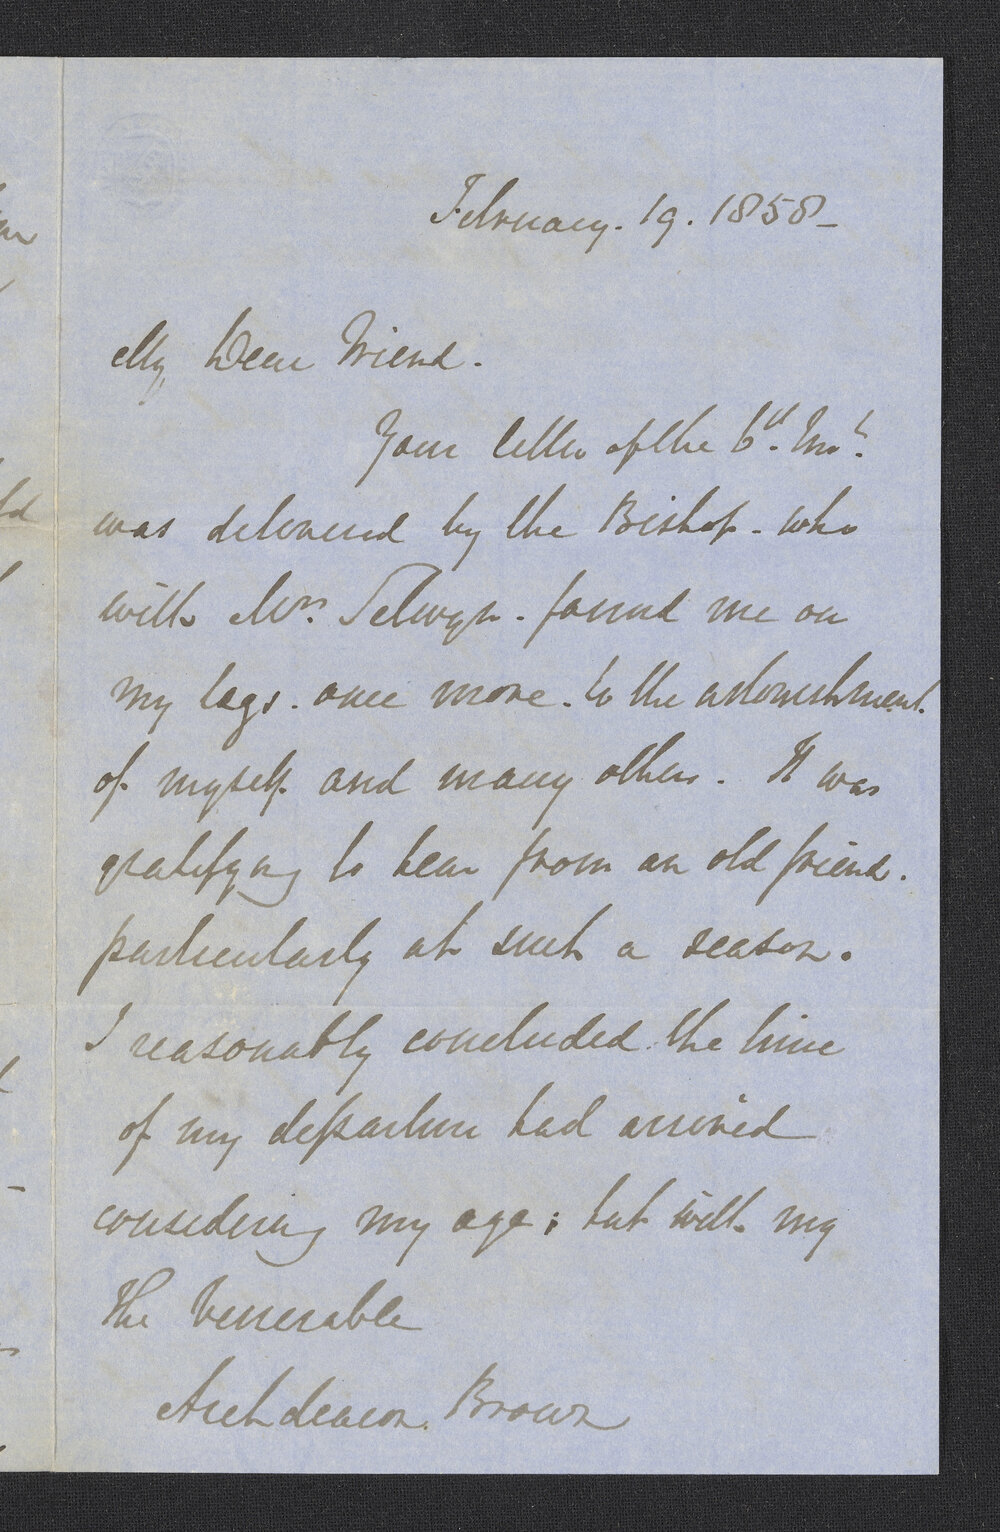 February. 19. 1858-
My Dear Friend.
Your letter of the 6th. Inst.
was delivered by the Bishop - who
with Mrs. Selwyn - found me on
my legs. once more. to the astonishment.
of myself. and many others. It was
gratifying to hear from an old friend.
particularly at such a season.
I reasonably concluded the time
of my departure had arrived
considering my age; but with my
The Venerable
Archdeacon. Brown